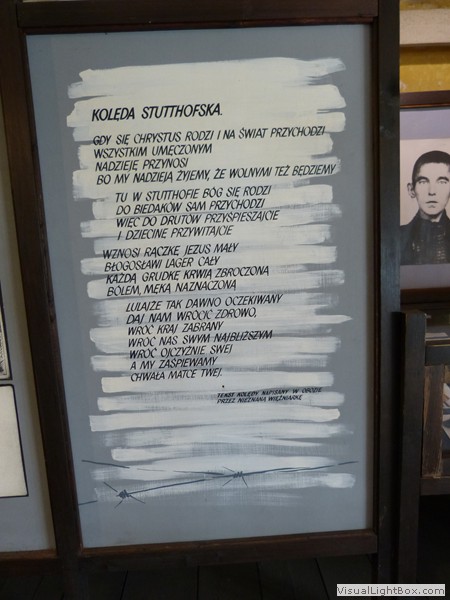 KOLĘDA STUTTHOFSKA.
GDY SIĘ CHRYSTUS RODZI I NA ŚWIAT PRZYCHODZI
WSZYSTKIM UMĘCZONYM
NADZIEJĘ PRZYNOSI
BO MY NADZIEJĄ ŻYJEMY, ŻE WOLNYMI TEŻ BĘDZIEMY
TU W STUTTHOFIE BÓG SIĘ RODZI
DO BIEDAKÓW SAM PRZYCHODZI
WIĘC DO DRUTÓW PRZYŚPIESZAJCIE
I DZIECINĘ PRZYWITAJCIE
WZNOSI RĄCZKĘ JEZUS MAŁY
BŁOGOSŁAWI LAGER CAŁY
KAŻDĄ GRUDKĘ KRWIĄ ZBROCZONĄ
BÓLEM, MĘKĄ NAZNACZONĄ
LULAJŻE TAK DAWNO OCZEKIWANY
DAJ NAM WRÓCIĆ ZDROWO,
WRÓĆ KRAJ ZABRANY
WRÓĆ NAS SWYM NAJBLIŻSZYM
WRÓĆ OJCZYŹNIE SWEJ
A MY ZAŚPIEWAMY
CHWAŁA MATCE TWEJ.
TEKST KOLĘDY NAPISANY W OBOZIE
PRZEZ NIEZNANĄ WIĘŹNIARKĘ
VisualLightBox.com